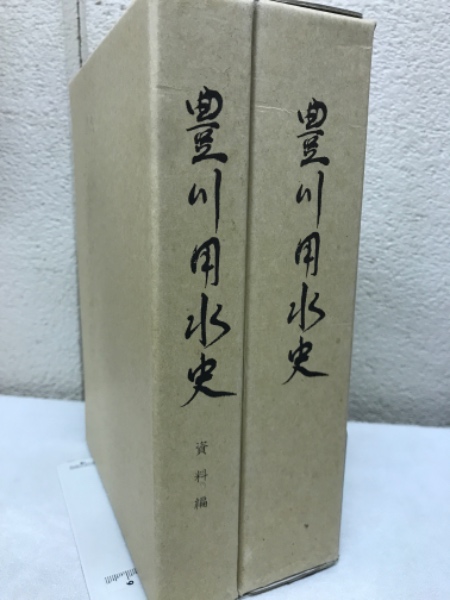 豊川用水史
資料編
豊川用水史